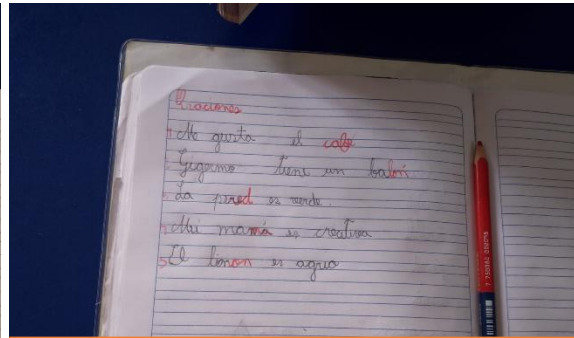 Oraciones
1 Me gusta el café
2 Gigermo tiene un balón
3 La pared es verde.
4 Mi mamá es creativa
5 El limon es agrio